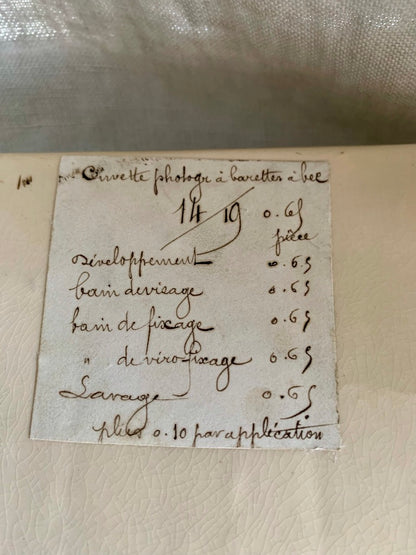 Cuvette photogr à barettes à bec
14/19 0.65
pièce
Développement 0.65
bain devisage 0.65
bain de fixage 0.65
" de viro-fixage 0.65
Lavage 0.65
plus 0.10 par application